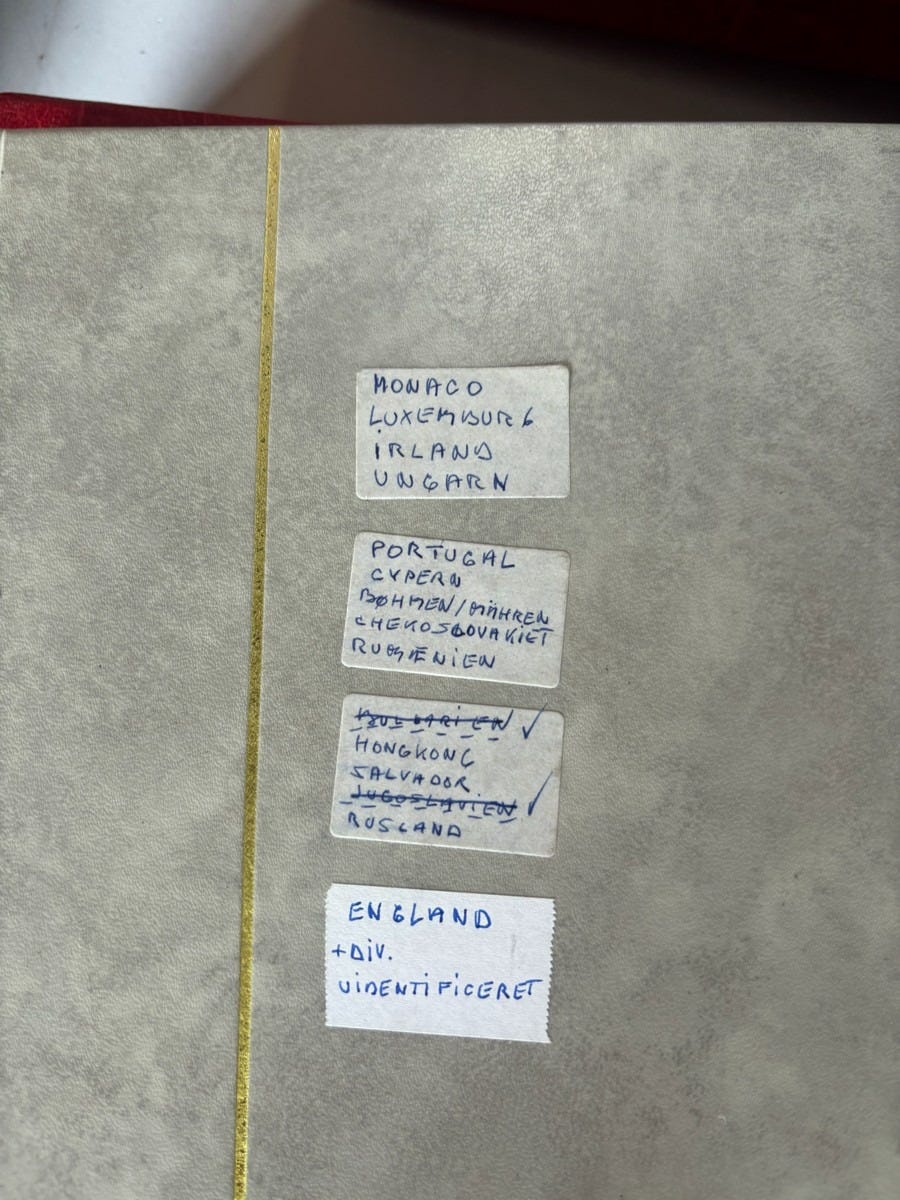 MONACO
LUXEMBURG
IRLAND
UNGARN
PORTUGAL
CYPERN
BØHMEN/MÄHREN
CHEKOSLOVAKIET
RUMÆNIEN
BULGARIEN ✓
HONGKONG
SALVADOR
JUGOSLAVIEN ✓
RUSLAND
ENGLAND
+DIV.
UIDENTIFICERET